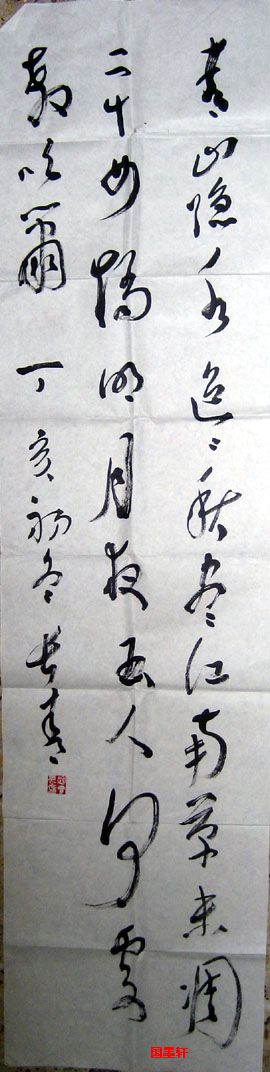 青山隐々水迢々秋尽江南草未凋
二十四橋明月夜玉人何處
教吹簫 丁亥初冬
国墨轩